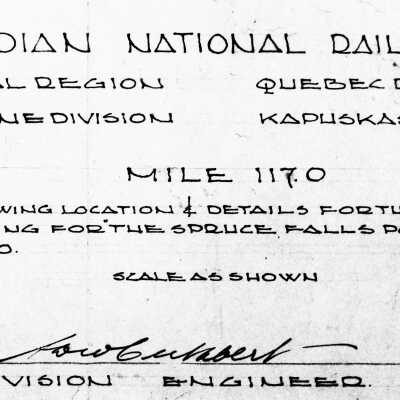 DIAN NATIONAL RAIL
AL REGION QUEBEC D
NE DIVISION KAPUSKAS
MILE 117.0
WING LOCATION & DETAILS FOR TH
NG FOR THE SPRUCE FALLS PO
O.
SCALE AS SHOWN
VISION ENGINEER.